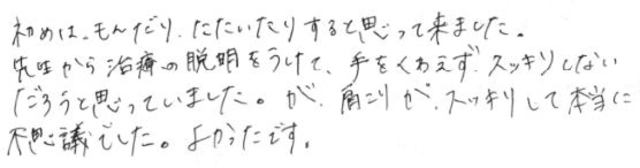 初めは、もんだり、たたいたりすると思って来ました。
先生から治療の説明をうけて、手をくわえず、スッキリしない
だろうと思っていました。が、肩こりが、スッキリして本当に
不思議でした。よかったです。